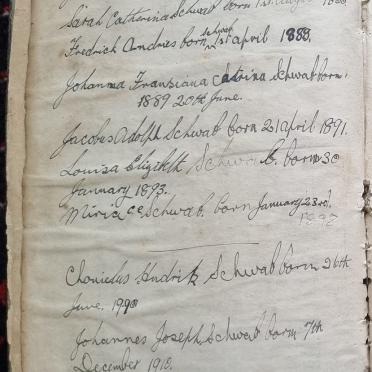 Sarah Catherina Schwab born 1st
Fredrick Andries born schwab 1st april 1888
Johanna Fransiana Catrina Schwab born
1889 20th June.
Jacobus Adolph Schwab born 21 april 1891.
Louisa Elizibth Schwab. born 30
January 1893.
Schwab. born January 23rd.
Hendrik Schwab born 26th
June. 1908
Johannes Joseph Schwab born 7th
December 1910.